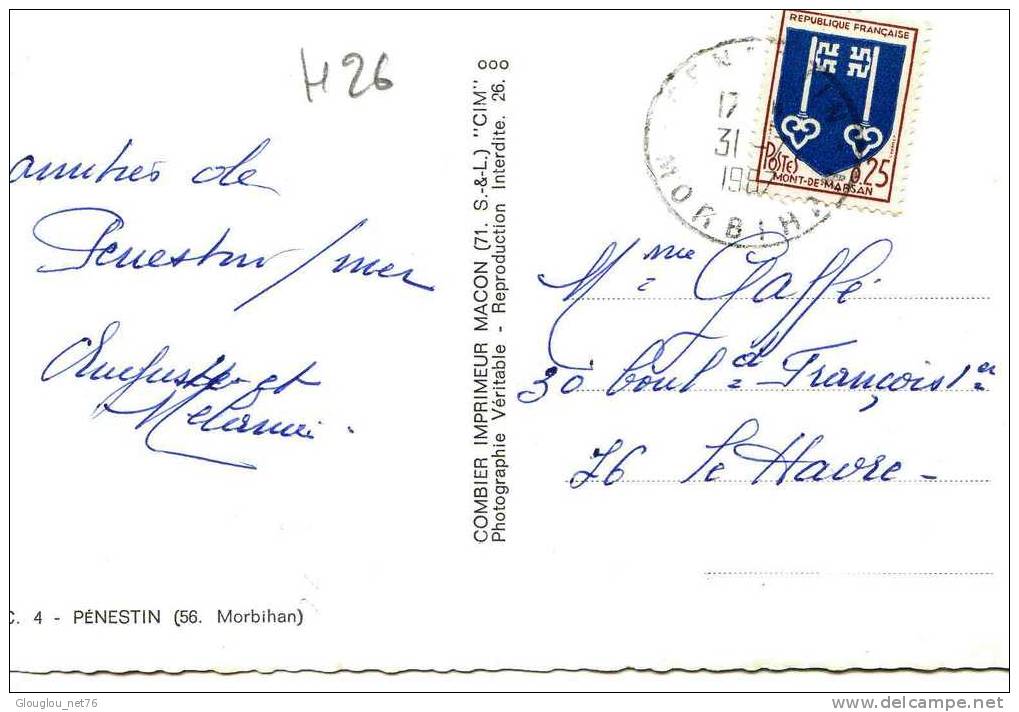 H 26
amitiés de
Penestin/mer
Auguste et
Melanie.
C. 4 - PÉNESTIN (56. Morbihan)
COMBIER IMPRIMEUR MACON (71. S.-&-L.) "CIM"
Photographie Véritable - Reproduction Interdite. 26.
REPUBLIQUE FRANÇAISE
POSTES
0.25
MONT-DE-MARSAN
17
31
MORBIHAN
Mme Gaffé
30 boul d François 1er
76 Le Havre -
Glouglou_net76
delcampe.net